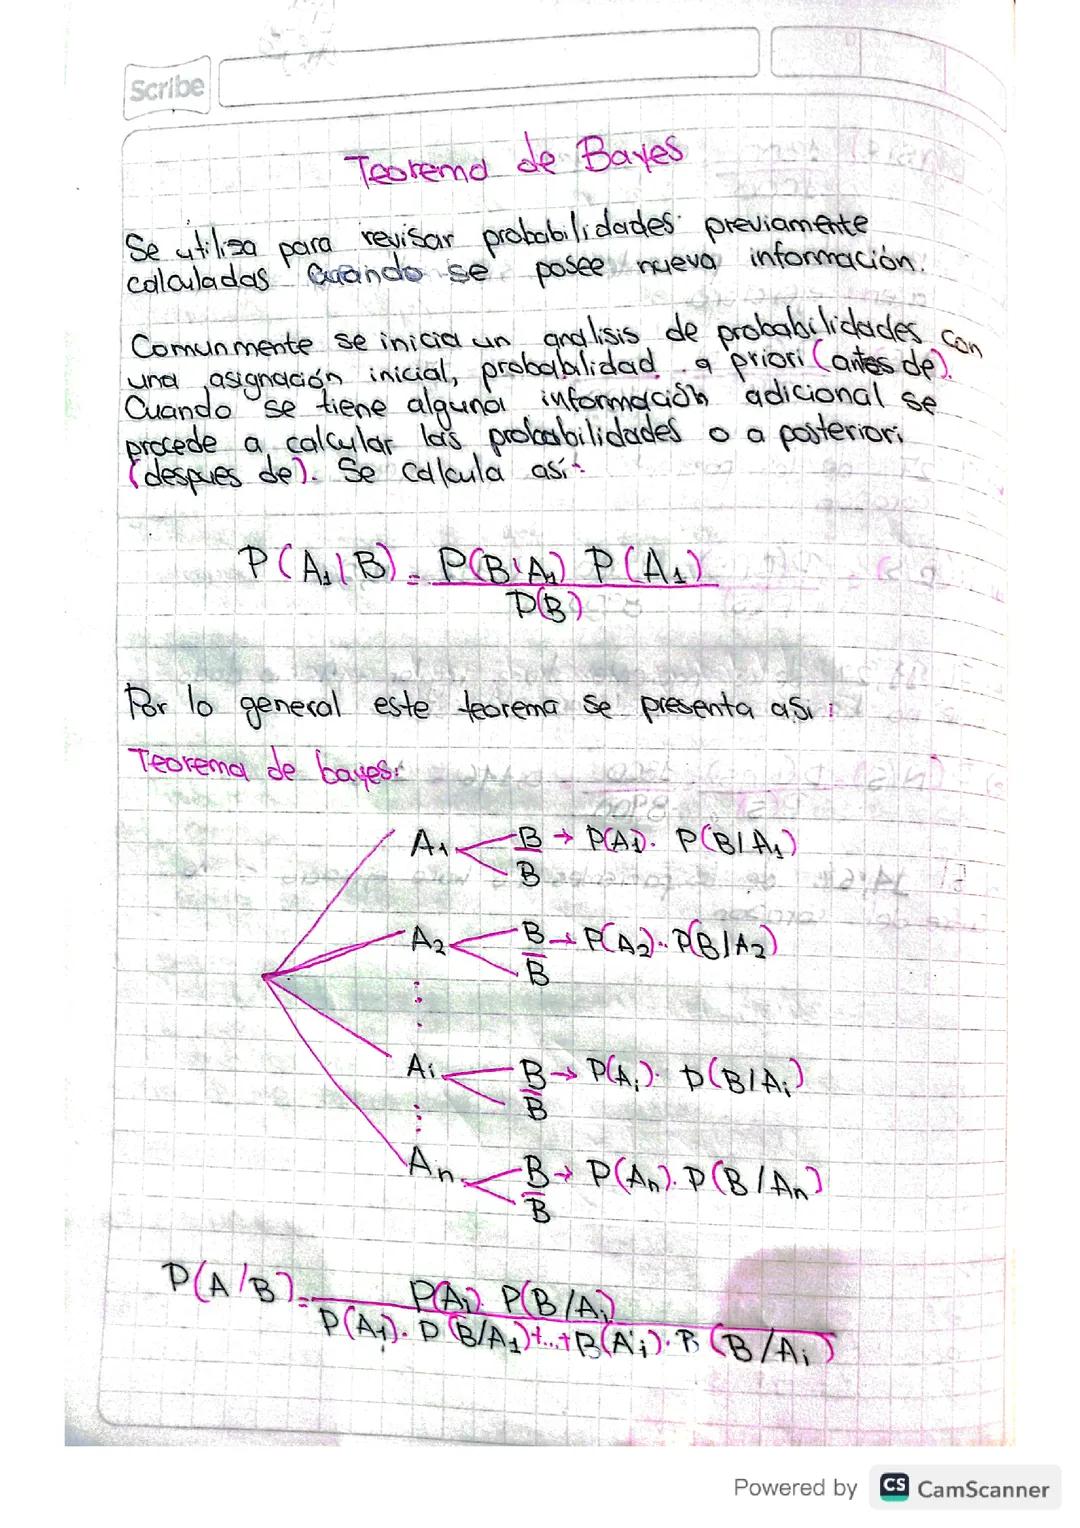 Scribe
Teorema de Bayes
Se utiliza para revisar probabilidades previamente
calculadas cuando se posee nueva información.
Comunmente se inicia un analisis de probabilidades con
una asignación inicial, probabilidad a priori (antes de).
Cuando se tiene alguna información adicional se
procede a calcular las probabilidades o a posteriori
(despues de). Se calcula así:
P(A₁|B) = P(B|A₁) P(A₁)
P(B)
Por lo general este teorema se presenta asi:
Teorema de bayes:
A₁ B → P(A₁). P(B/A₁)
B̅
A₂ B → P(A₂). P(B/A₂)
B̅
⋮
Aᵢ B → P(Aᵢ). P(B/Aᵢ)
B̅
⋮
Aₙ B → P(Aₙ). P(B/Aₙ)
B̅
P(A/B) = P(Aᵢ). P(B/Aᵢ)
P(A₁). P(B/A₁)+...+P(Aᵢ). P(B/Aᵢ)
Powered by CS CamScanner